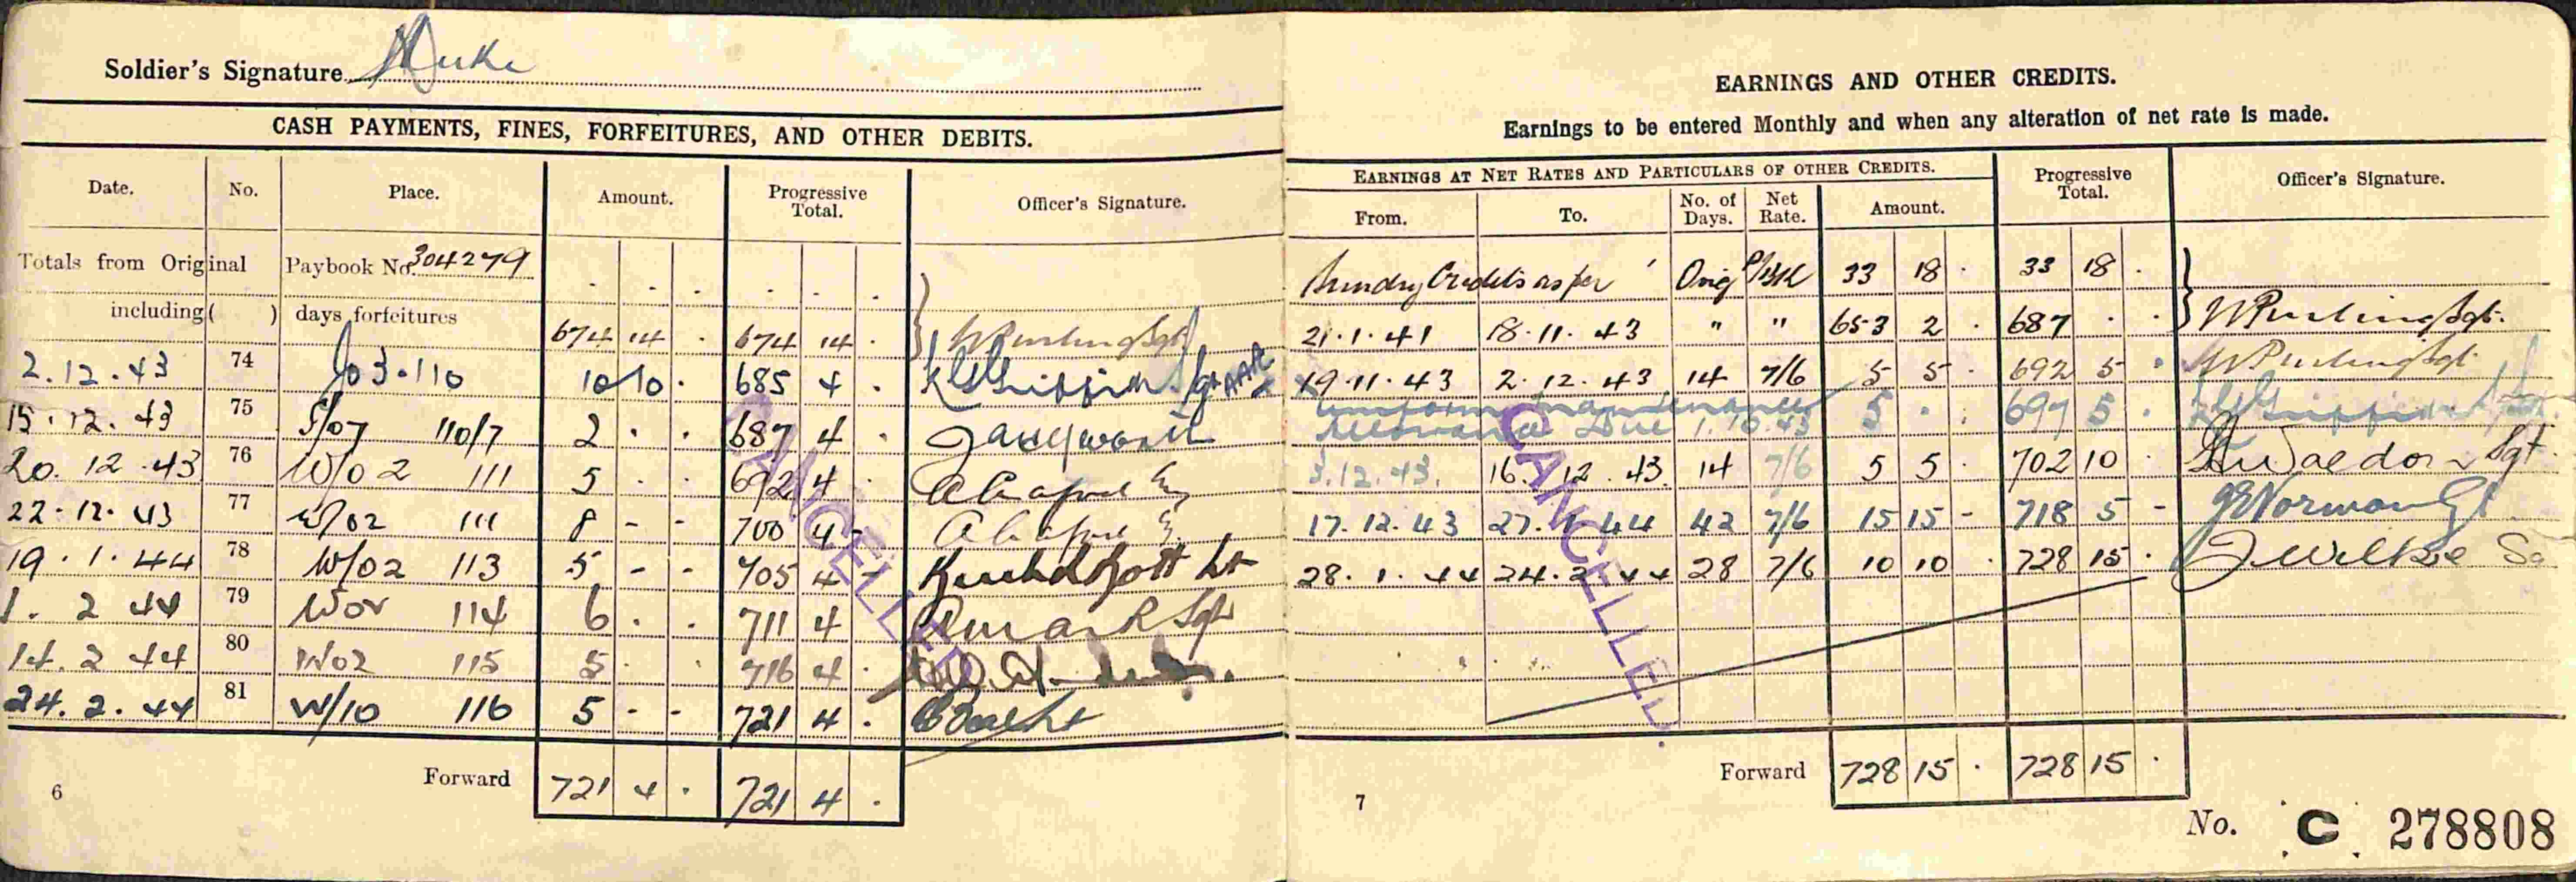 Soldier's Signature
CASH PAYMENTS, FINES, FORFEITURES, AND OTHER DEBITS.
Date. No. Place. Amount. Progressive Total. Officer's Signature.
Totals from Original Paybook No. 304279
including ( ) days forfeitures 674 14 . 674 14 .
2.12.43 74 110 10 10 . 685 4 .
15.12.43 75 110/7 2 . . 687 4 .
20.12.43 76 W/02 111 5 . . 692 4 .
22.12.43 77 W/02 111 8 - - 700 4 -
19.1.44 78 W/02 113 5 - - 705 4 -
1. 2 44 79 114 6 . . 711 4
14.2 44 80 W02 115 5 . . 716 4 .
24.2.44 81 W/10 116 5 - - 721 4 .
Forward 721 4 . 721 4 .
6
EARNINGS AND OTHER CREDITS.
Earnings to be entered Monthly and when any alteration of net rate is made.
EARNINGS AT NET RATES AND PARTICULARS OF OTHER CREDITS. Progressive Total. Officer's Signature.
From. To. No. of Days. Net Rate. Amount.
Sundry Credits as per Orig 33 18 . 33 18 .
21.1.41 18.11.43 " " 653 2 . 687 . . Sgt.
19.11.43 2.12.43 14 7/6 5 5 . 692 5 . Sgt
Uniform maintenance
Allowance Due 1.10.43 5 . . 697 5 .
3.12.43. 16.12.43 14 7/6 5 5 . 702 10 . Waldon Sgt
17.12.43 27.1.44 42 7/6 15 15 - 718 5 - Norman
28.1.44 24.2.44 28 7/6 10 10 . 728 15 . J Wilkie
CANCELLED
CANCELLED.
Forward 728 15 . 728 15 .
7
No. C 278808